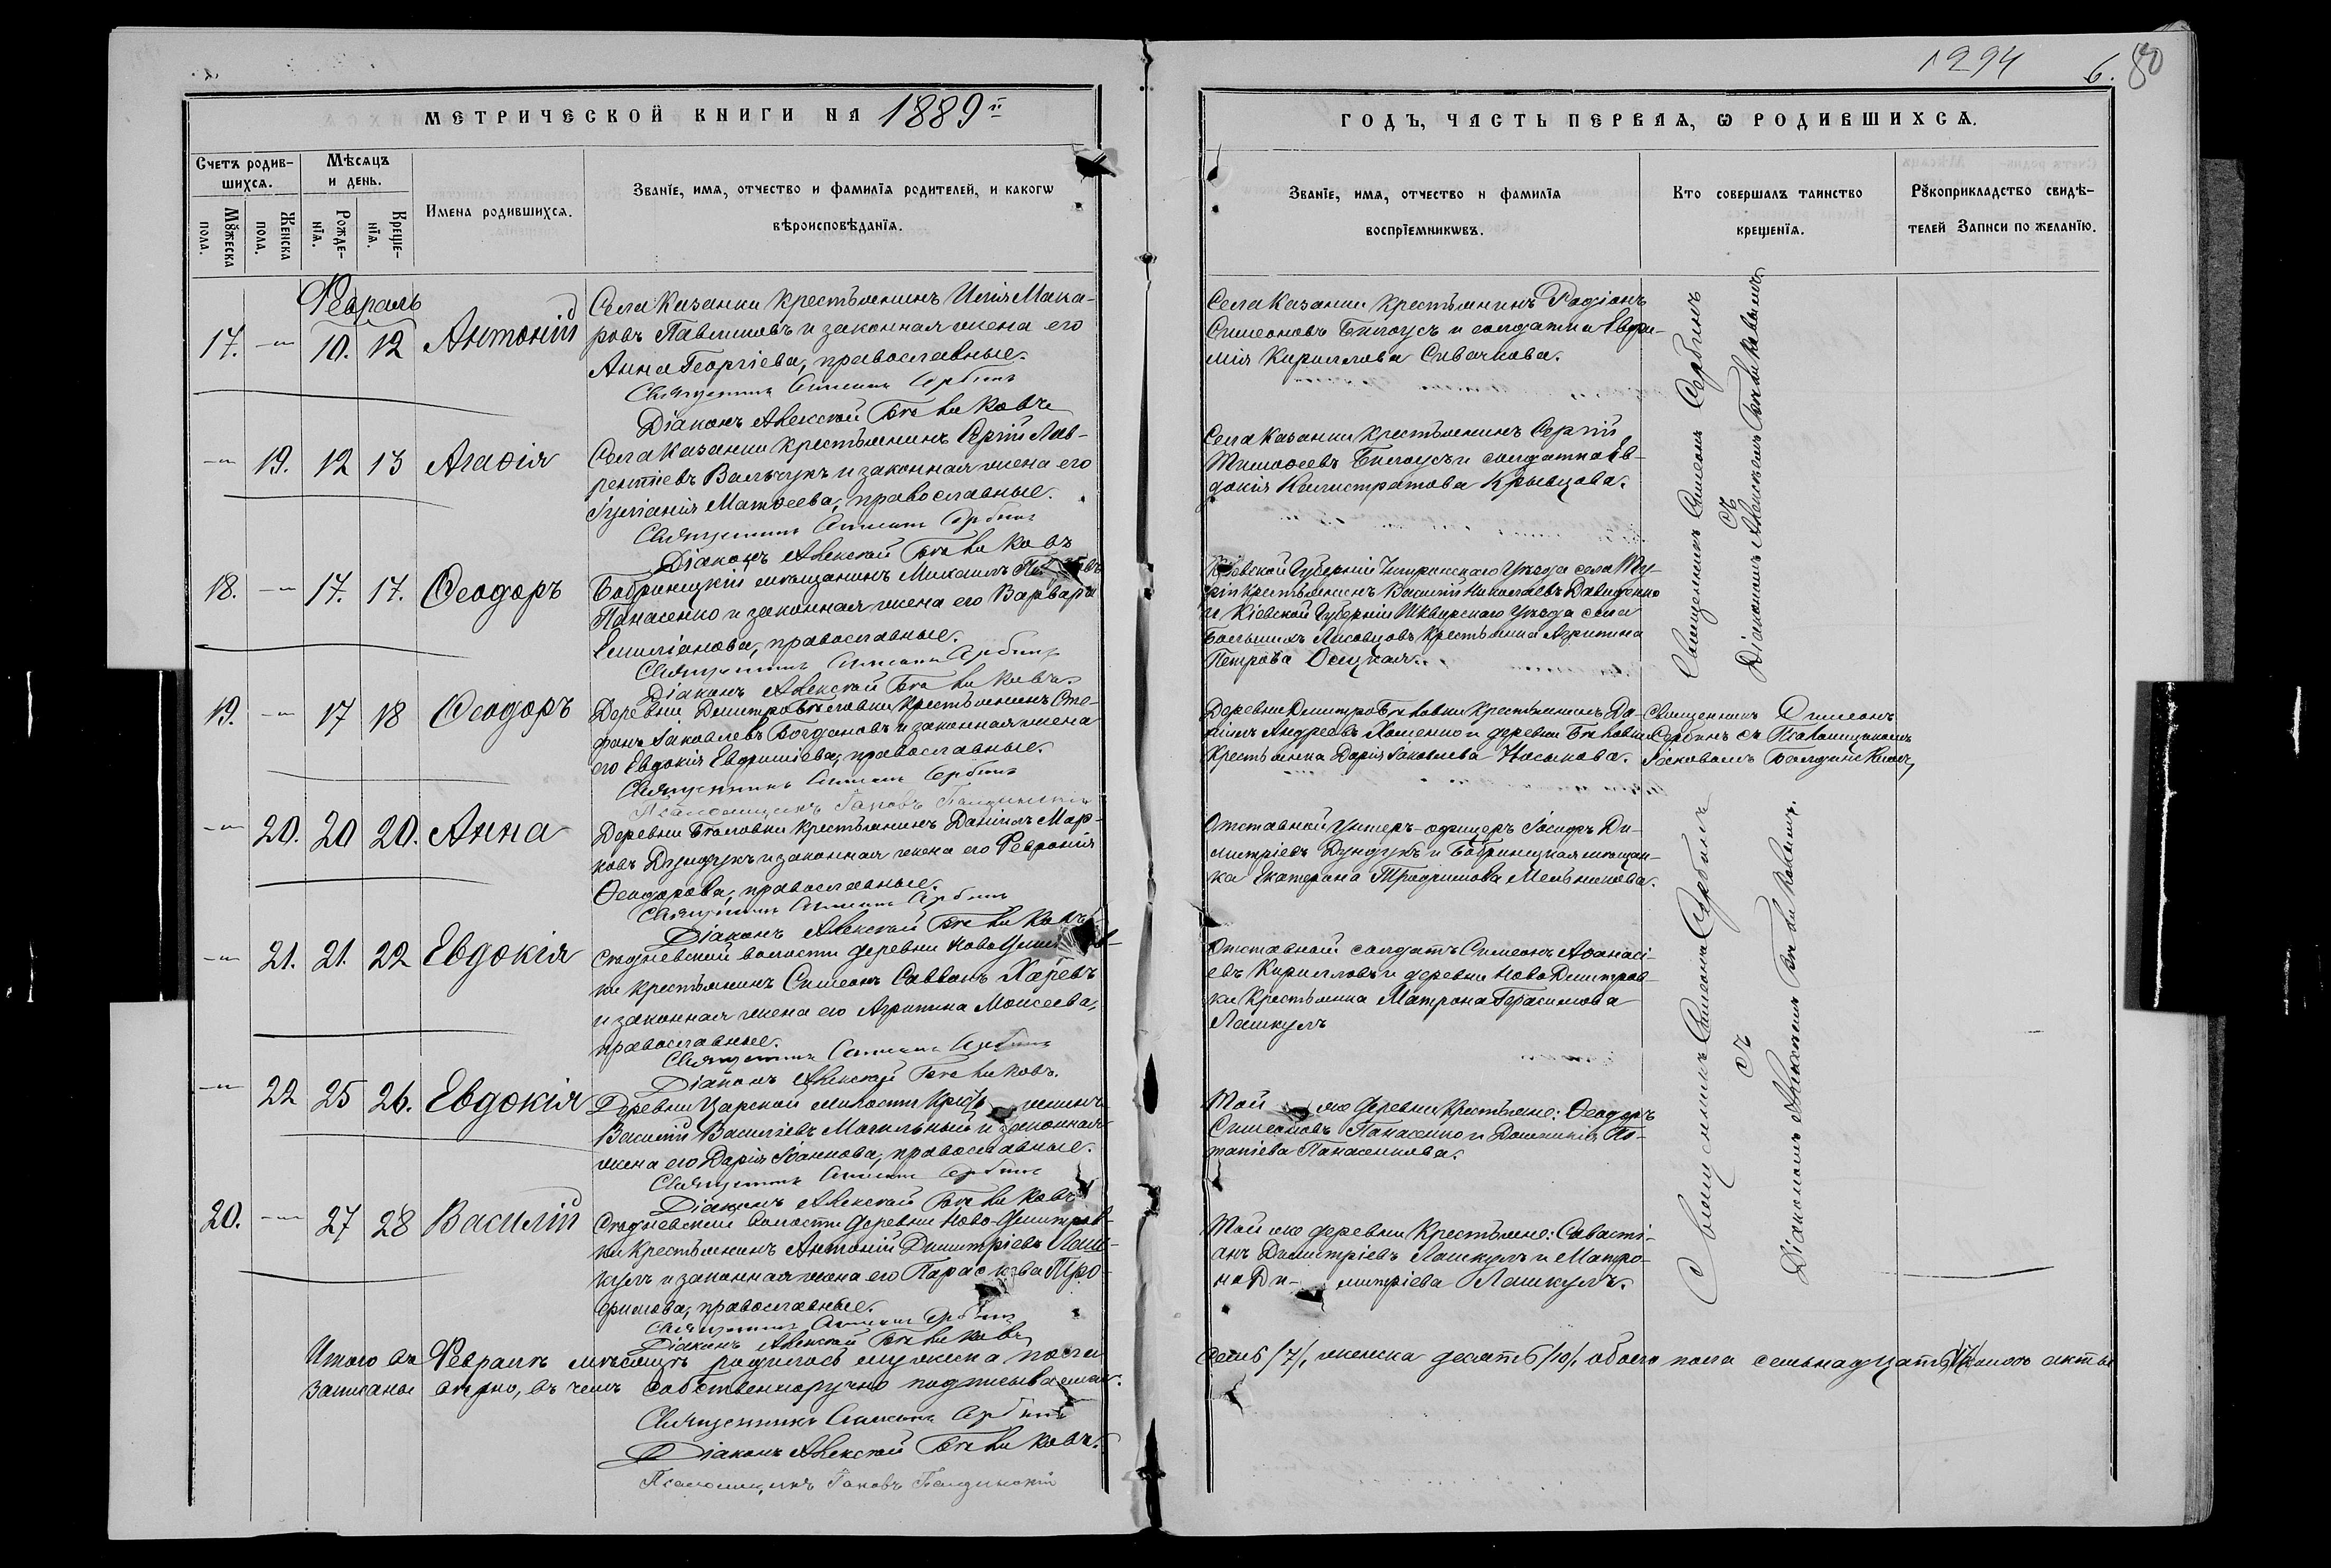 1294 6. 80
МЕТРИЧЕСКОЙ КНИГИ НА 1889й
ГОДЪ, ЧАСТЬ ПЕРВАЯ, Ѡ РОДИВШИХСѦ.
Счетъ родив-
шихсѧ.
Мѣсѧцъ
и день.
Мꙋжеска
пола.
Женска
пола.
Рожде-
нїѧ.
Креще-
нїѧ.
Имена родившихсѧ.
Званїе, имѧ, отчество и фамилїѧ родителей, и какогѡ
вѣроисповѣданїѧ.
Званїе, имѧ, отчество и фамилїѧ
воспрїемникѡвъ.
Кто совершалъ таинство
крещенїѧ.
Рꙋкоприкладство свидѣ-
телей Записи по желанїю.
Февраль
17. — 10. 12 Антоній
Села Казанки крестьянинъ Илія Мака-
ровъ Павлишовъ и законная жена его
Анна Георгіева, православные.
Священникъ Симеонъ Сербинъ
Діаконъ Алексѣй Бѣликовъ
Села Казанки крестьянинъ Родіонъ
Симеоновъ Билоусъ и солдатка Евфи-
мія Кириллова Сивачкова.
Священникъ Симеонъ Сербинъ
съ
Діакономъ Алексѣемъ Бѣликовымъ.
— 19. 12 13 Агаѳія
Села Казанки крестьянинъ Сергій Лав-
рентіевъ Вальчукъ и законная жена его
Іуліанія Матѳеева, православные.
Священникъ Симеонъ Сербинъ
Діаконъ Алексѣй Бѣликовъ
Села Казанки крестьянинъ Сергій
Тимоѳеевъ Билоусъ и солдатка Ев-
докія Калистратова Крывцова.
18. — 17. 17. Ѳеодоръ
Бобринецкій мѣщанинъ Михаилъ
Панасенко и законная жена его Варвара
Емиліанова, православные.
Священникъ Симеонъ Сербинъ
Діаконъ Алексѣй Бѣликовъ.
Кіевской Губерніи Чигринскаго Уѣзда села
крестьянинъ Василій Николаевъ Давиденко
и Кіевской Губерніи Сквирскаго Уѣзда села
Большихъ Лисовцовъ крестьянка Агрипина
Петрова Осецкая.
19. — 17 18 Ѳеодоръ
Деревни Димитро Бѣловки крестьянинъ Сте-
фанъ Іаковлевъ Богдановъ и законная жена
его Евдокія Евфиміева, православные.
Священникъ Симеонъ Сербинъ
Псаломщикъ Іаковъ Балдинскій
Деревни Димитро Бѣловки крестьянинъ Да-
ніилъ Андреевъ Хоменко и деревни Бѣловки
крестьянка Дарія Іаковлева Носыкова.
Священникъ Симеонъ
Сербинъ съ Псаломщикомъ
Іаковомъ Балдинскимъ
— 20. 20 20. Анна
Деревни Бѣловки крестьянинъ Даніилъ Мар-
ковъ Дундукъ и законная жена его Февронія
Ѳеодорова, православные.
Священникъ Симеонъ Сербинъ
Діаконъ Алексѣй Бѣликовъ
Отставной Унтеръ-офицеръ Іосифъ Ди-
митріевъ Дундукъ и Бобринецкая мѣщан-
ка Екатерина Трофимова Мельникова.
Священникъ Симеонъ Сербинъ
съ
Діакономъ Алексѣемъ Бѣликовымъ.
— 21. 21. 22 Евдокія
волости деревни Ново
ки крестьянинъ Симеонъ Саввинъ Харевъ
и законная жена его Агрипина Моисеева,
православные.
Священникъ Симеонъ Сербинъ
Діаконъ Алексѣй Бѣликовъ.
Отставной солдатъ Симеонъ Аѳанасі-
евъ Кирилловъ и деревни Ново Димитров-
ки крестьянка Матрона Герасимова
Лашкулъ
— 22 25 26. Евдокія
Деревни Царской милости крестьянинъ
Василій Василіевъ Могильный и законная
жена его Дарія Іоаннова, православные.
Священникъ Симеонъ Сербинъ
Діаконъ Алексѣй Бѣликовъ
Той же деревни крестьяне: Ѳеодоръ
Симеоновъ Панасенко и Домникія По-
тапіева Панасенкова.
20. — 27 28 Василій
волости деревни Ново-Димитров-
ки крестьянинъ Антоній Димитріевъ Лаш-
кулъ и законная жена его Параскева Тро-
фимова, православные.
Священникъ Симеонъ Сербинъ
Діаконъ Алексѣй Бѣликовъ
Той же деревни крестьяне: Савасті-
анъ Димитріевъ Лашкулъ и Матро-
на Ди-митріева Лашкулъ.
Итого въ Февралѣ мѣсяцѣ родилось мужеска пола семь /7/, женска десять /10/, обоего пола семьнадцать /17/ актъ
записаны вѣрно, въ чемъ собственноручно подписываемся.
Священникъ Симеонъ Сербинъ
Діаконъ Алексѣй Бѣликовъ.
Псаломщикъ Іаковъ Балдинскій